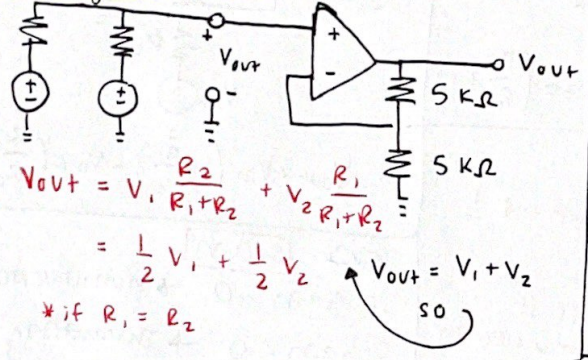 +
-
+
-
+
Vout
-
+
-
Vout
5 KΩ
5 KΩ
Vout = V1 R2/(R1+R2) + V2 R1/(R1+R2)
= 1/2 V1 + 1/2 V2
* if R1 = R2
Vout = V1 + V2
so